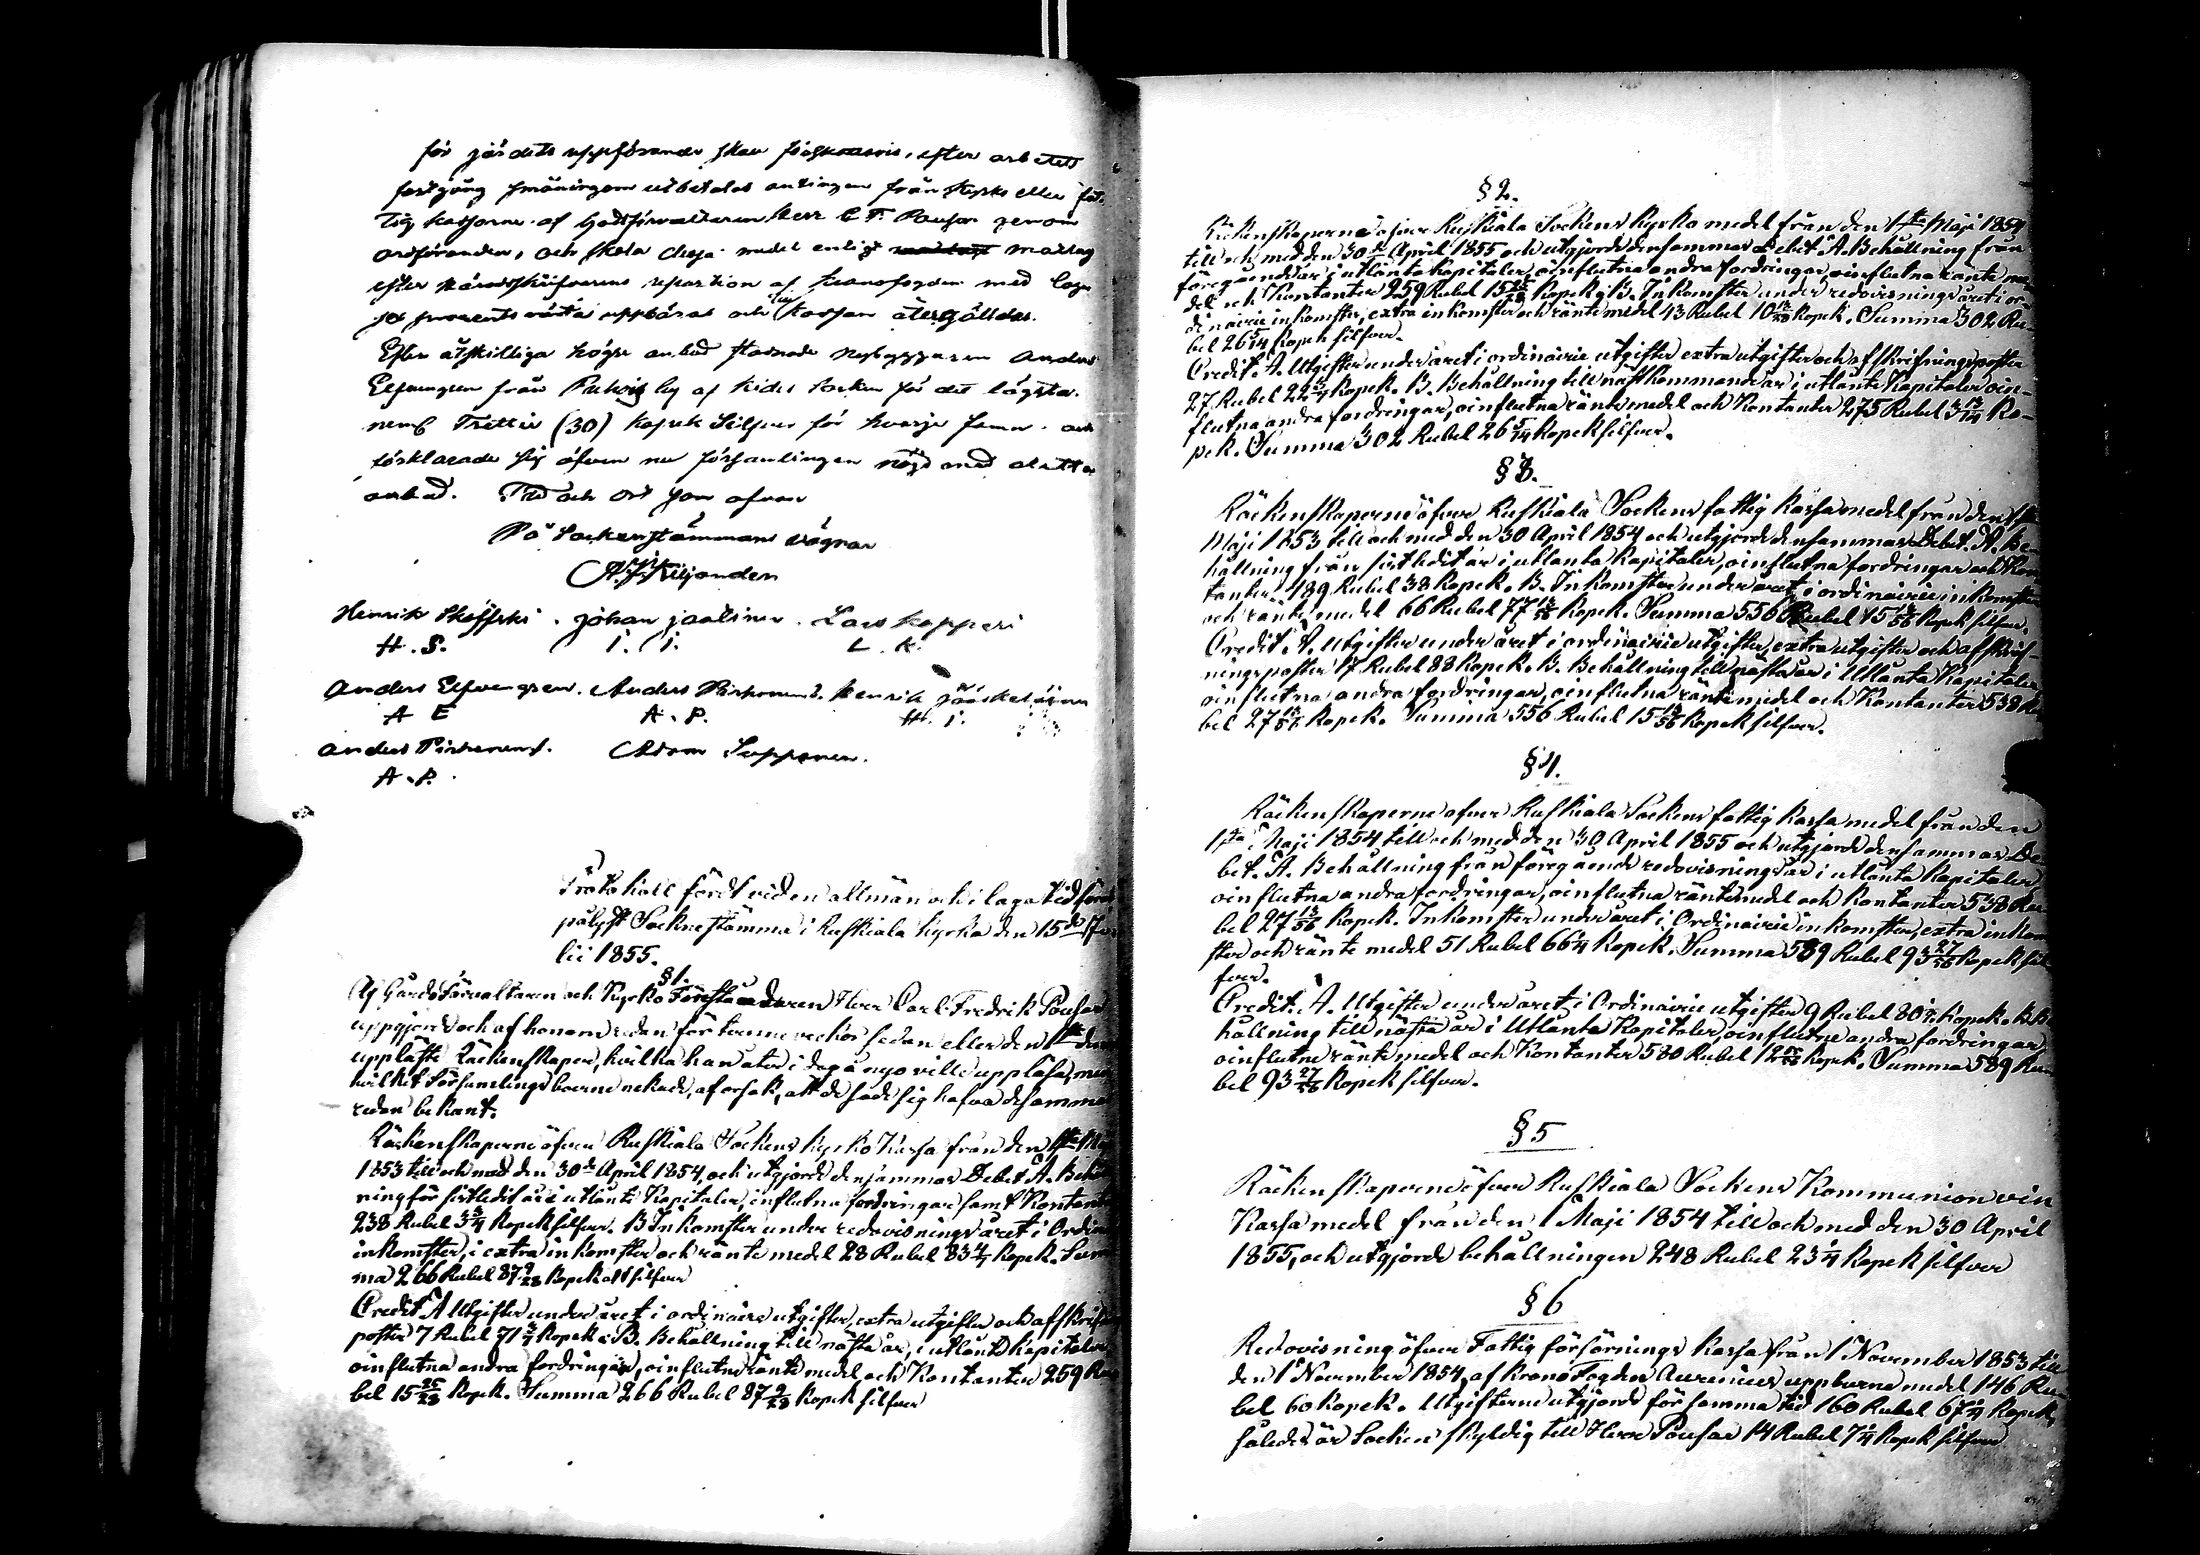 för gärdets uppförande sker förskottsvis, efter arbetets
fortgång småningom utbetalas antingen från Kyrko eller fat-
tig kassorne af Godsförvaltaren Herr C. F. Pousar genom
ordföranden, och skola dessa medel enligt mantal
efter häradsskrifvarens repartion af kronofogden med laga
sex procents ränta uppbäras och till kassan återgälldas.
Efter åtskilliga högre anbud stannade nybyggaren Anders
Elfvengren från by af Kides Socken för det lägsta.
neml. Trettio (30) kopek Silfver för hvarje famn. och
förklarade sig äfven nu församlingen nögd med detta
anbud. Tid och ort som ofvan
På Sockenstämmans vägnar
A. J. Kiljander
Henrik Skeffski. Johan Jaatinen. Lars Kopperi
H. S. I. I. L. K.
Anders Elfvengren. Anders Pirhonen. Henrik Jääskeläinen
A E A. P. H. I.
Anders Pirhonen. Adam Supponen.
A. P.
Protokoll fördt vid en allmän och i laga tid förut
pålyst Socknestämma i Ruskiala kyrka den 15de Ju-
lii 1855.
§ 1.
Af GårdsFörvaltaren och Kyrko Föreståndaren Herr Carl Fredrik Pousar
uppgjorde och af honom redan för tvenne veckor sedan eller den 1sta dennes
uppläste Räckenskaper, hvilka han åter i dag å nyo ville uppläsa, men
hvilket Församlings boerne nekade, af orsak, att de sade sig hafva desamma
redan bekant.
Räckenskaperne öfver Ruskiala Sockens Kyrko Kassa från den 1sta Maji
1853 till och med den 30de April 1854, och utgjorde densammas Debet A. Behåll-
ning för sistledit år i utlånte Kapitaler, influtna fordringar samt Kontant
238 Rubel 3 3/4 Kopek silfver. B Inkomster under redovisnings året i Ordinarie
inkomster, i extra inkomster och ränte medel 28 Rubel 83 4/7 Kopek. Sum-
ma 266 Rubel 87 9/28 Kopek allt silfver
Credit A Utgifter under året i ordinaire utgifter, extra utgifter och afskrifnings
poster 7 Rubel 71 3/7 Kopek. B. Behållning till nästa år, i utlånte Kapitaler,
oinflutna andra fordringar, oinflutne ränte medel och Kontanter 259 Ru-
bel 15 25/28 Kopek. Summa 266 Rubel 87 9/28 Kopek silfver
§ 2.
Räckenskaperne öfver Ruskiala Sockens Kyrko medel från den 1sta Maji 1854
till och med den 30de April 1855 och utgjorde densammas Debet A. Behållning från
föregående år i utlånta kapitaler, oinflutna andra fordringar, oinflutna ränte me-
del och Kontanter 259 Rubel 15 25/28 Kopek. B. Inkomster under redovisnings året i or-
dinairie inkomster, extra inkomster och ränte medel 43 Rubel 10 13/28 Kopek. Summa 302 Ru-
bel 26 5/14 Kopek silfver.
Credit. A. Utgifter under året i ordinairie utgifter extra utgifter och afskrifningsposter
27 Rubel 22 3/7 Kopek. B. Behållning till nästkommande år i utlånte Kapitaler oin-
flutna andra fordringar, oinflutna ränte medel och Kontanter 275 Rubel 3 13/14 Ko-
pek. Summa 302 Rubel 26 5/14 Kopek silfver.
§ 3.
Räckenskaperne öfver Ruskiala Sockens fattig Kassa medel från den 1sta
Maji 1853 till och med den 30 April 1854 och utgjorde densammas Debet. A. Be-
hållning från sistledit år i utlånta Kapitaler, oinflutna fordringar och Kon-
tanter 489 Rubel 38 Kopek. B. Inkomster under året, i ordinairie inkomster
och ränte medel 66 Rubel 77 13/56 Kopek. Summa 556 Rubel 15 13/56 Kopek silfver.
Credit. A. Utgifter under året i ordinairie utgifter, extra utgifter och afskrif-
ningsposter 17 Rubel 88 Kopek. B. Behållning till nästa år i Utlånta Kapitaler
oinflutna andra fordringar, oinflutna ränte medel och Kontanter 538 Ru-
bel 27 13/56 Kopek. Summa 556 Rubel 15 13/56 Kopek silfver.
§ 4.
Räckenskaperne öfver Ruskiala Sockens fattig Kassa medel från den
1sta Maji 1854 till och med den 30 April 1855 och utgjorde densammas De-
bet. A. Behållning från föregående redovisnings år i utlånta Kapitaler,
oinflutna andra fordringar, oinflutna räntemedel och Kontanter 538 Ru-
bel 27 13/56 Kopek. Inkomster under året i Ordinairie inkomster, extra inkom-
ster och ränte medel 51 Rubel 66 1/4 Kopek. Summa 589 Rubel 93 27/56 Kopek sil-
fver.
Credit. A. Utgifter under året i Ordinairie utgifter 9 Rubel 80 Kopek. B. Be-
hållning till nästa år i Utlånta Kapitaler, oinflutne andra fordringar,
oinflutne ränte medel och Kontanter 580 Rubel Kopek. Summa 589 Ru-
bel 93 27/56 Kopek silfver.
§ 5
Räckenskaperne öfver Ruskiala Sockens Kommunion vin
Kassa medel från den 1 Maji 1854 till och med den 30 April
1855, och utgjorde behållningen 248 Rubel 23 1/4 Kopek silfver
§ 6
Redovisning öfver Fattig försörnings Kassa från 1 November 1853 till
den 1 November 1854, af KronoFogden Aurenius uppburne medel 146 Ru-
bel 60 Kopek. Utgifterne utgjorde för samma tid 160 Rubel 67 1/4 Kopek,
således är Socken skyldig till Herr Pousar 14 Rubel 7 1/4 Kopek silfver